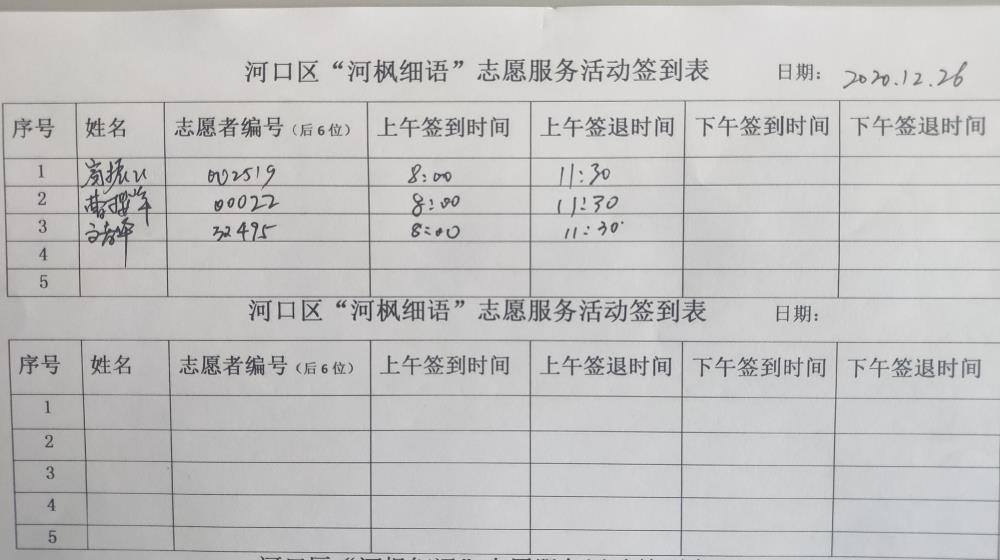 河口区“河枫细语”志愿服务活动签到表 日期: 2020.12.26
序号 姓名 志愿者编号(后6位) 上午签到时间 上午签退时间 下午签到时间 下午签退时间
1 002519 8:00 11:30
2 00022 8:00 11:30
3 32495 8:00 11:30
4
5
河口区“河枫细语”志愿服务活动签到表 日期:
序号 姓名 志愿者编号(后6位) 上午签到时间 上午签退时间 下午签到时间 下午签退时间
1
2
3
4
5